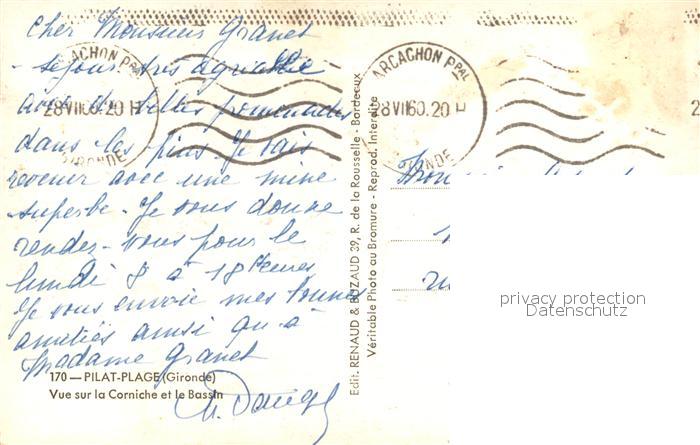 Cher Monsieur Granet
- Séjour très agréable
avec de belles promenades
dans les pins. Je vais
revenir avec une mine
superbe. Je vous donne
rendez-vous pour le
lundi 8 à 18 heures
Je vous envoie mes bonnes
amitiés ainsi qu'à
Madame Granet
170 — PILAT-PLAGE (Gironde)
Vue sur la Corniche et le Bassin
ARCACHON Ppal
28 VII 60. 20 H
GIRONDE
ARCACHON Ppal
28 VII 60. 20 H
GIRONDE
2
Edit. RENAUD & BUZAUD 39, R. de la Rousselle - Bordeaux
Véritable Photo au Bromure - Reprod. Interdite
privacy protection
Datenschutz